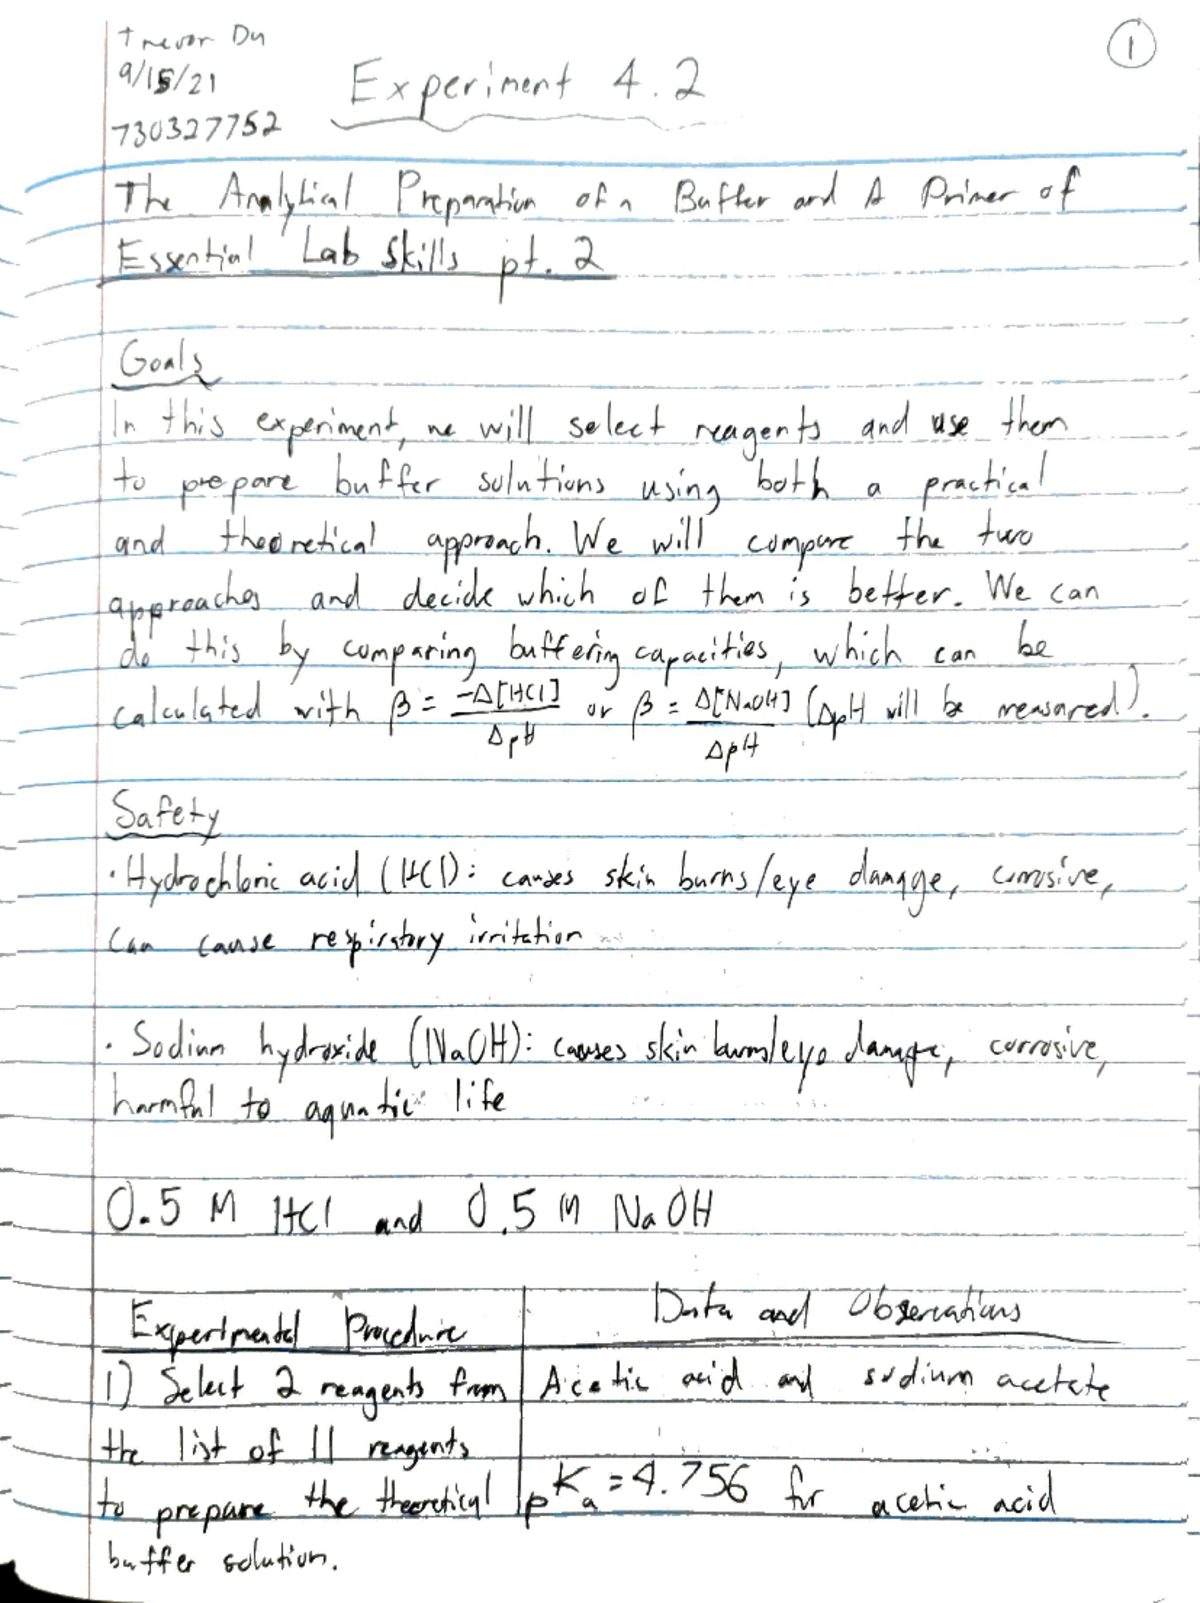 Trevor Du
9/15/21
730327752
1
Experiment 4.2
The Analytical Preparation of a Buffer and A Primer of
Essential Lab Skills pt. 2
Goals
In this experiment, we will select reagents and use them
to prepare buffer solutions using both a practical
and theoretical approach. We will compare the two
approaches and decide which of them is better. We can
do this by comparing buffering capacities, which can be
calculated with β = -Δ[HCl]/ΔpH or β = Δ[NaOH]/ΔpH (ΔpH will be measured).
Safety
· Hydrochloric acid (HCl): causes skin burns/eye damage, corrosive,
can cause respiratory irritation
· Sodium hydroxide (NaOH): causes skin burns/eye damage, corrosive,
harmful to aquatic life
0.5 M HCl and 0.5 M NaOH
Experimental Procedure
1) Select 2 reagents from
the list of 11 reagents
to prepare the theoretical
buffer solution.
Data and Observations
Acetic acid and sodium acetate
pKa = 4.756 for acetic acid